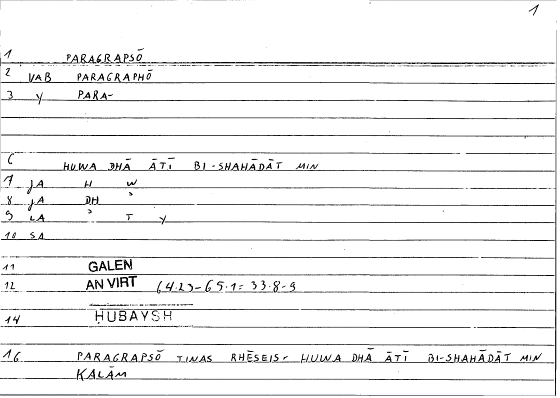 1
1 PARAGRAPSŌ
2 VAB PARAGRAPHŌ
3 Y PARA-
6 HUWA DHĀ ĀTĪ BI-SHAHĀDĀT MIN
7 JA H W
8 JA DH ʾ
9 LA ʾ T Y
10 SA
11 GALEN
12 AN VIRT 64.23-65.1= 33.8-9
14 HUBAYSH
16 PARAGRAPSŌ TINAS RHĒSEIS- HUWA DHĀ ĀTĪ BI-SHAHĀDĀT MIN
KALĀM